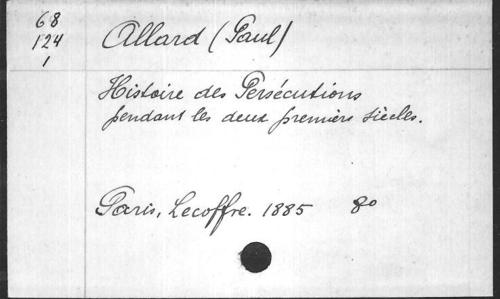 68
124
1
Allard (Paul)
Histoire des Persécutions
pendant les deux premiers siècles.
Paris, Lecoffre. 1885 8º